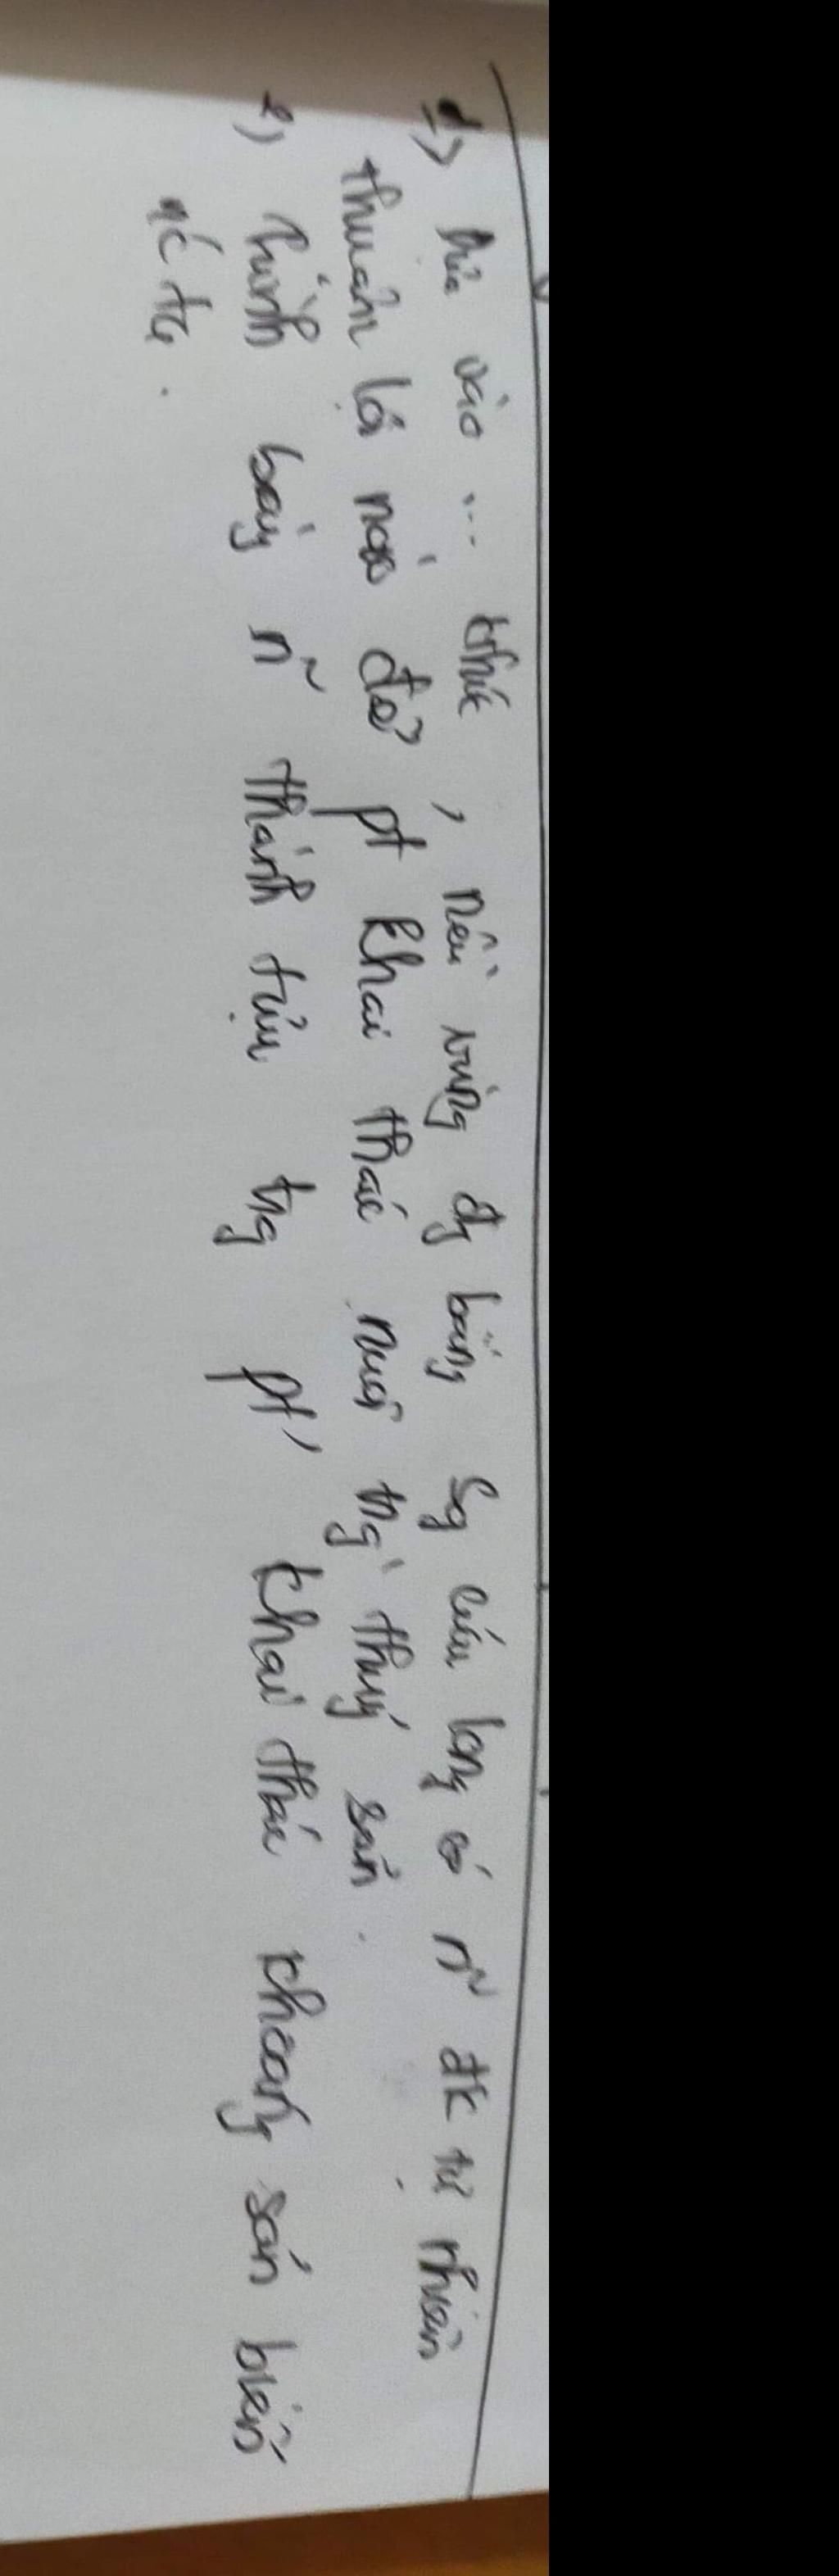 1) Dựa vào ... thức, nêu vùng đg bằng Sg cửu long có n~ đk tự nhiên
thuận lợi nào để pt khai thác nuôi trg thuỷ sản.
2) trình bày n~ thành tựu trg pt khai thác khoáng sản biển
nc ta.